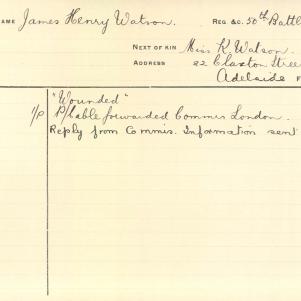 NAME James Henry Watson. REG &C. 50th Battl
NEXT OF KIN Miss K. Watson.
ADDRESS 22 Claxton Stree
Adelaide
"Wounded"
Cable forwarded Commis London.
Reply from Commis. Information sent